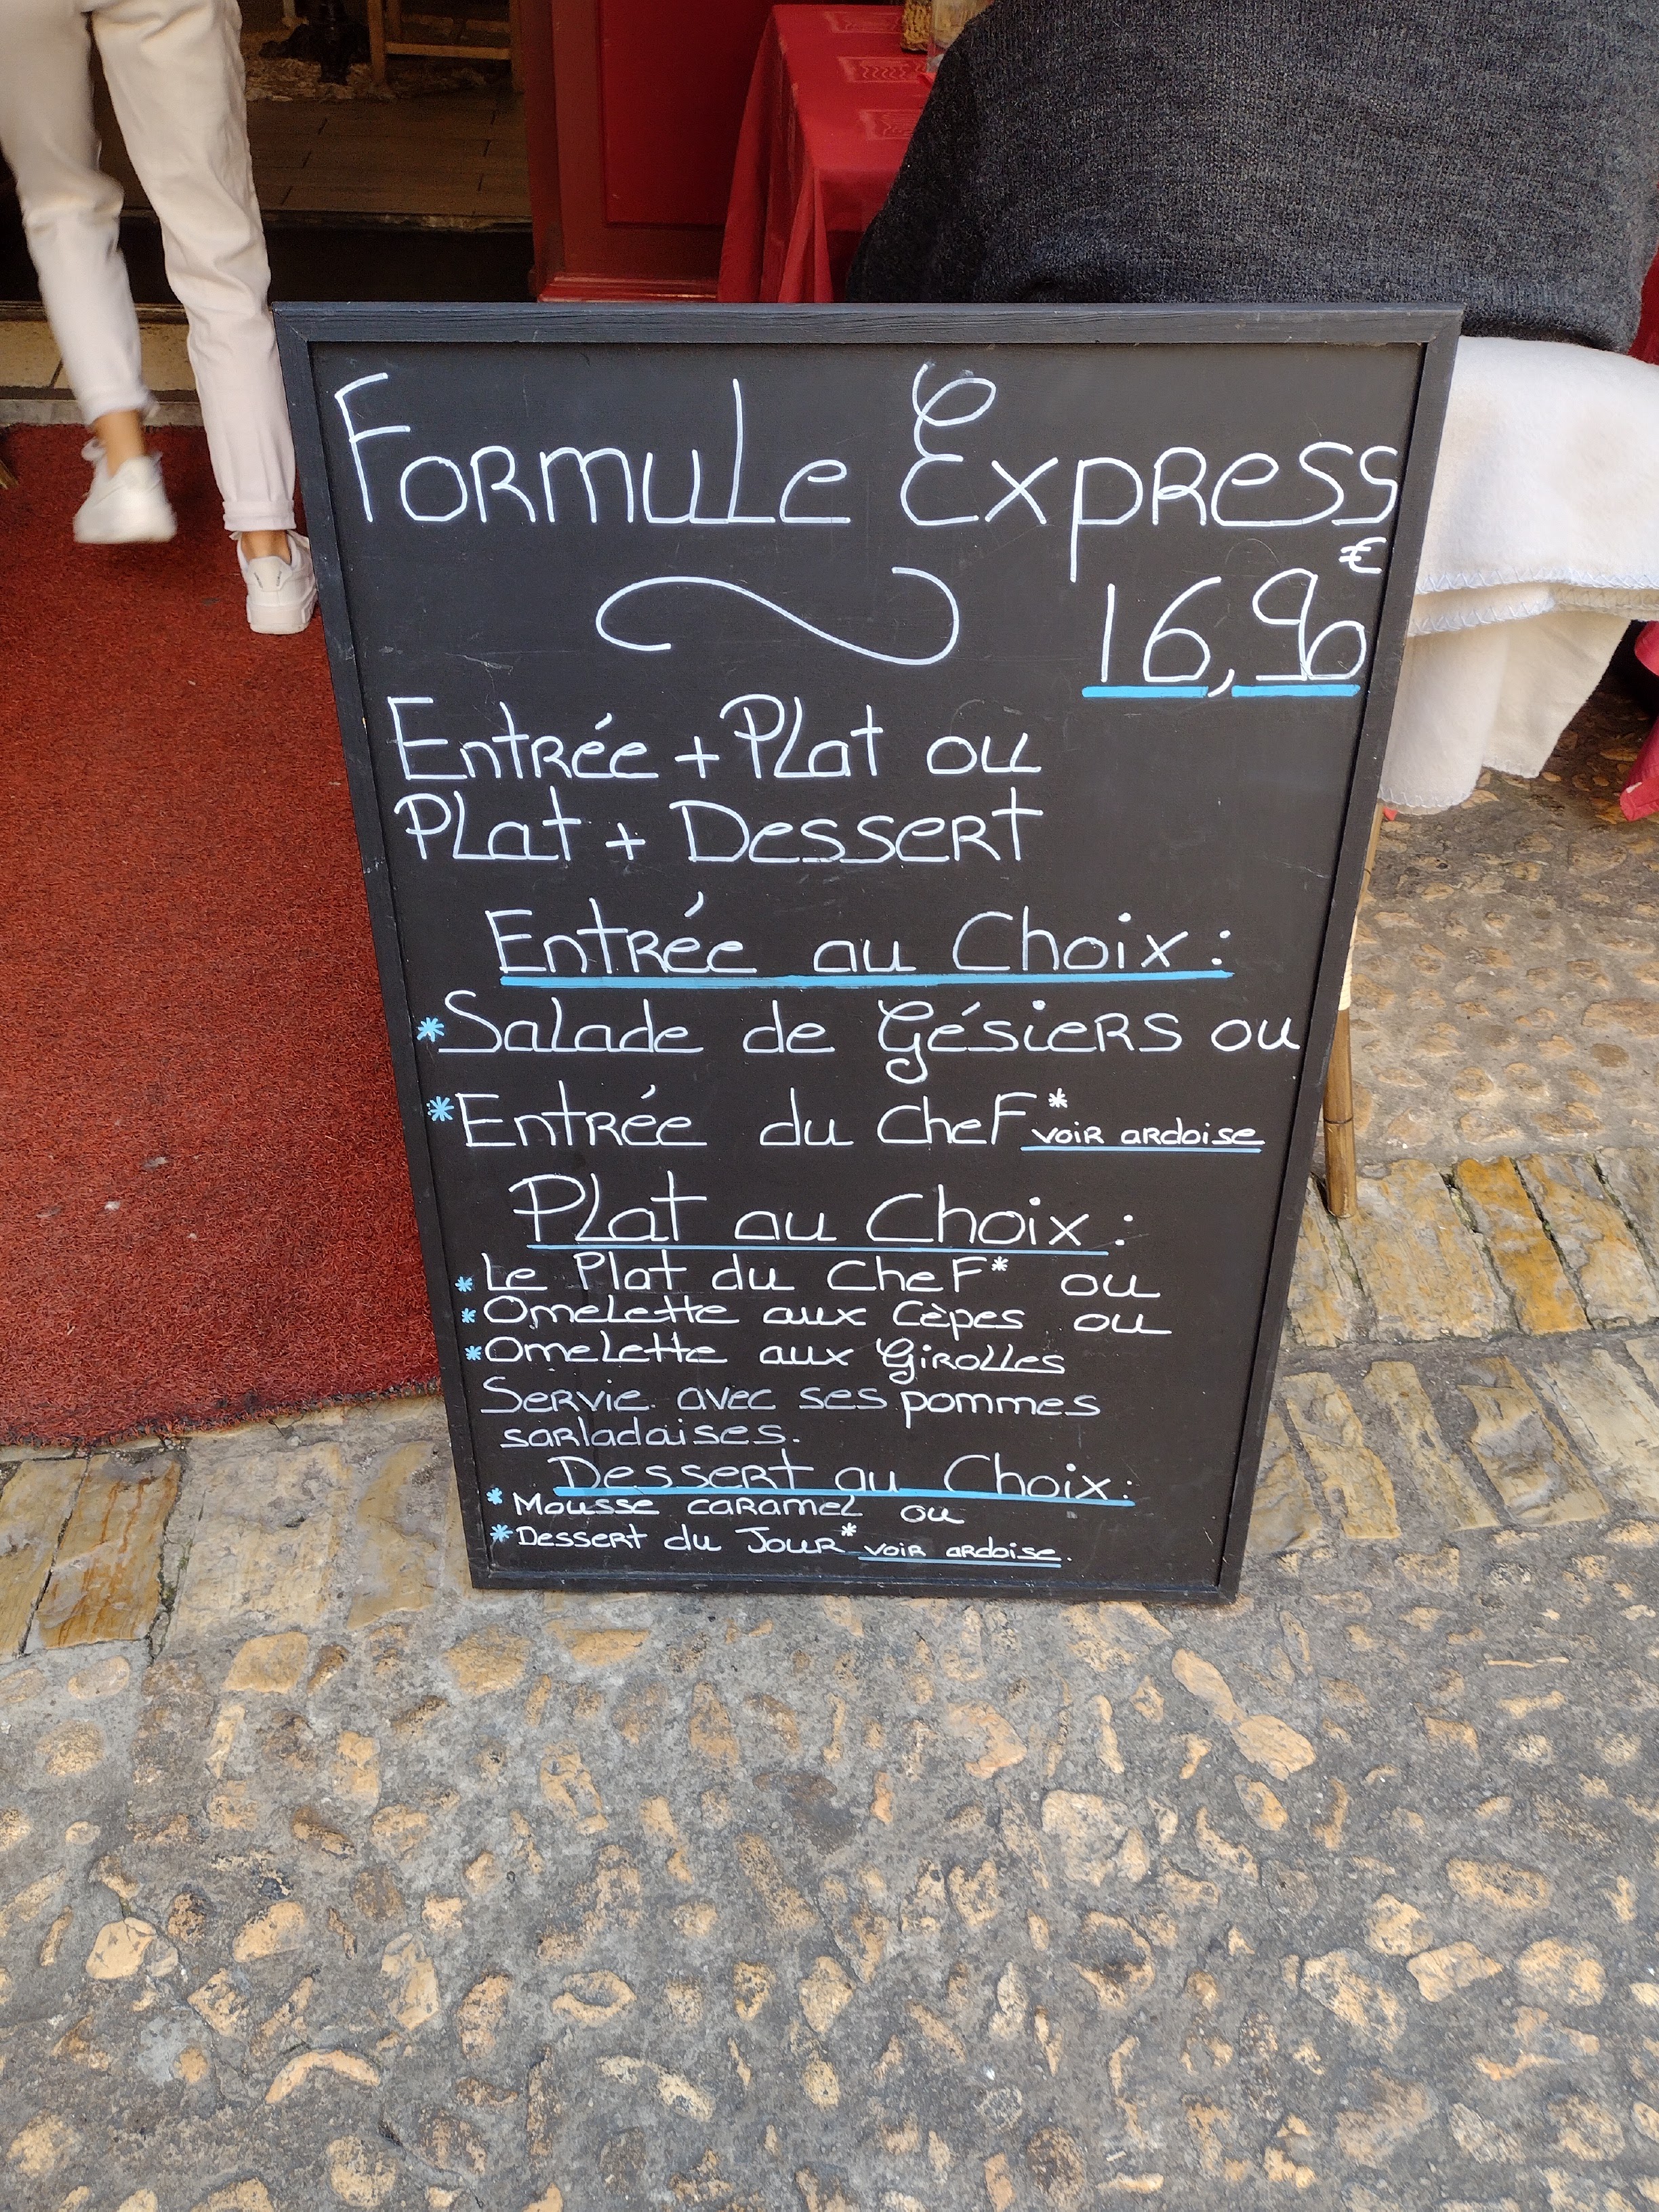 Formule Express
€
16,90
Entrée + Plat ou
Plat + Dessert
Entrée au Choix :
*Salade de Gésiers ou
*Entrée du Chef* voir ardoise
Plat au Choix :
*Le Plat du Chef* ou
*Omelette aux Cèpes ou
*Omelette aux Girolles
Servie avec ses pommes
sarladaises.
Dessert au Choix :
*Mousse caramel ou
*Dessert du Jour* voir ardoise.